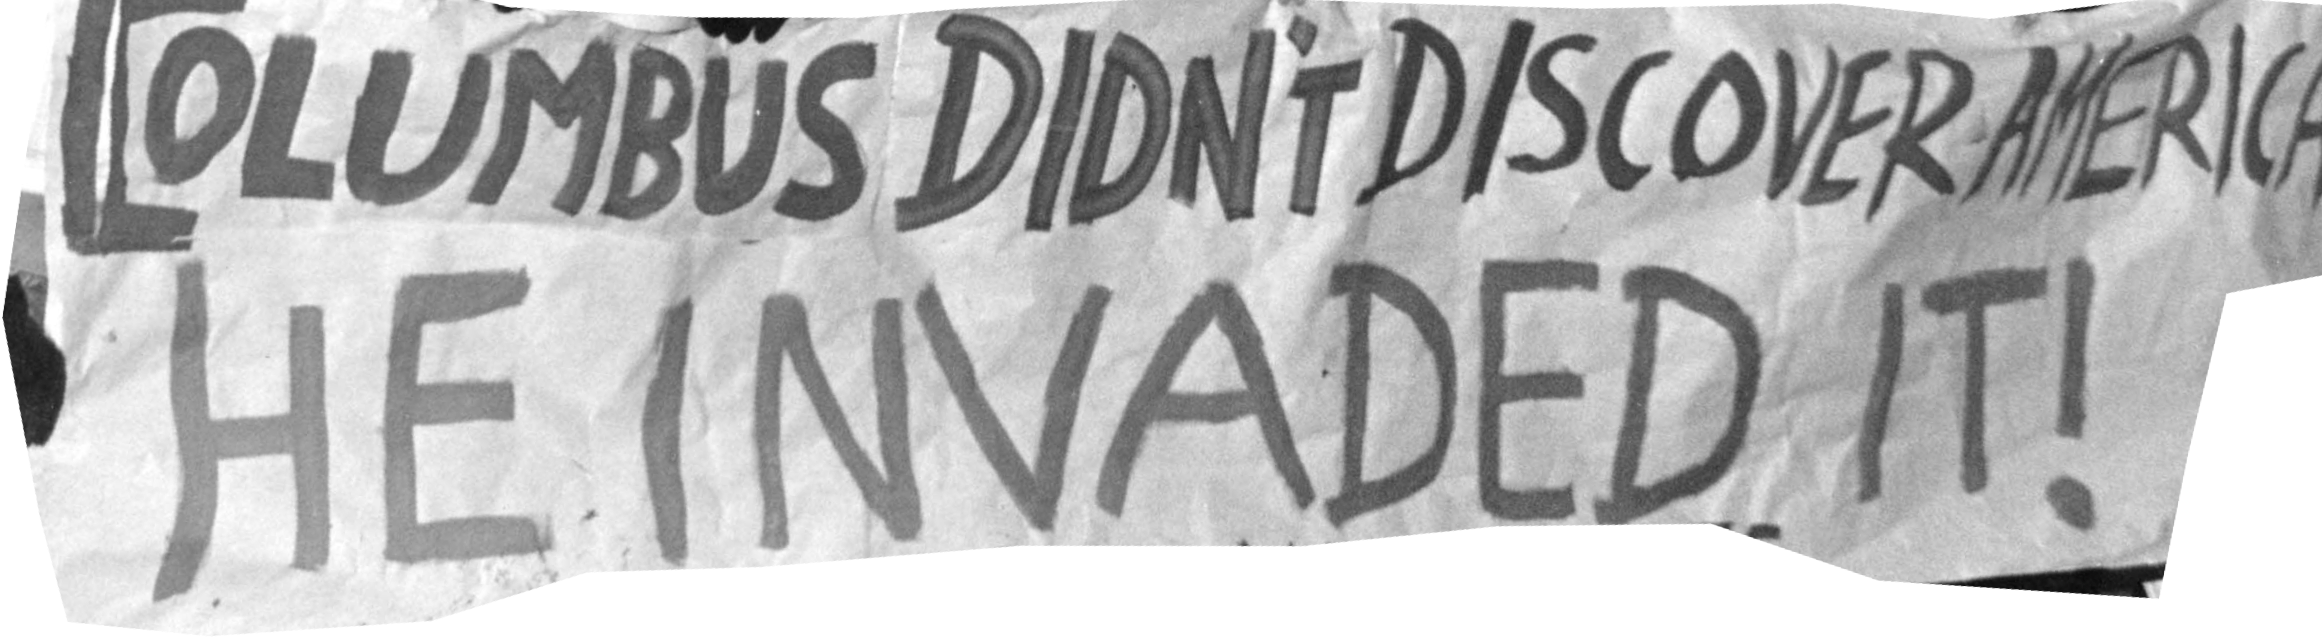 COLUMBUS DIDN'T DISCOVER AMERICA
HE INVADED IT!